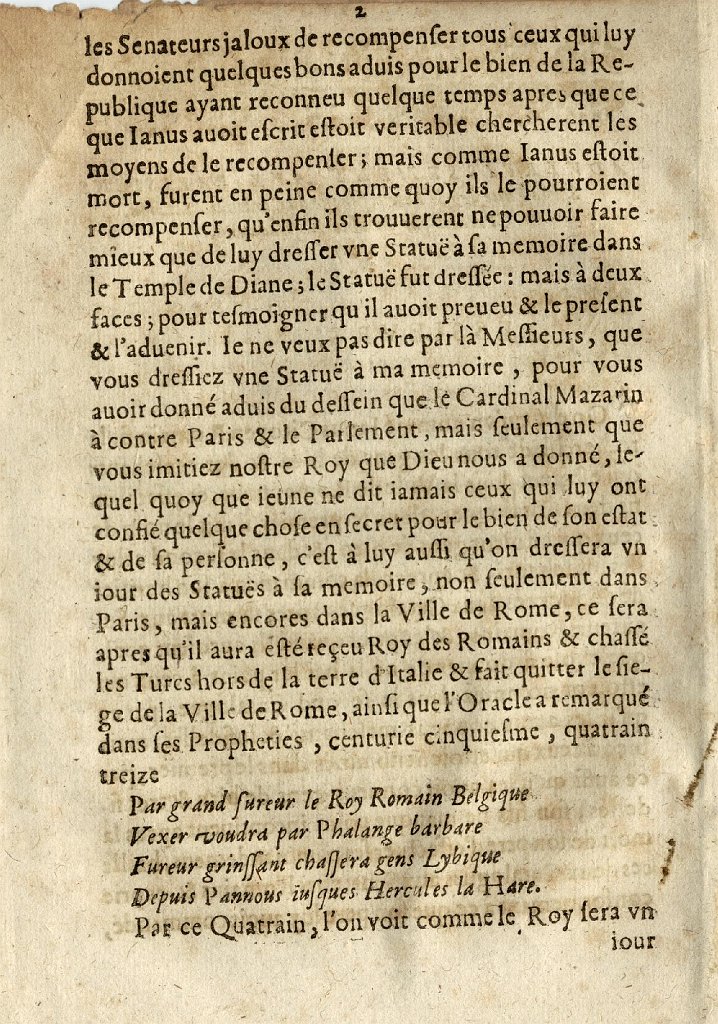 2
les Senateurs jaloux de recompenſer tous ceux qui luy
donnoient quelques bons aduis pour le bien de la Re-
publique ayant reconneu quelque temps apres que ce
que Ianus auoit eſcrit eſtoit veritable chercherent les
moyens de le recompenſer; mais comme Ianus eſtoit
mort, furent en peine comme quoy ils le pourroient
recompenſer, qu'enfin ils trouuerent ne pouuoir faire
mieux que de luy dreſſer vne Statuë à ſa memoire dans
le Temple de Diane; le Statuë fut dreſſée: mais à deux
faces; pour teſmoigner qu il auoit preueu & le preſent
& l'aduenir. Ie ne veux pas dire par là Meſſieurs, que
vous dreſſiez vne Statuë à ma memoire, pour vous
auoir donné aduis du deſſein que le Cardinal Mazarin
à contre Paris & le Parlement, mais ſeulement que
vous imitiez noſtre Roy que Dieu nous a donné, le-
quel quoy que ieune ne dit iamais ceux qui luy ont
confié quelque choſe en ſecret pour le bien de ſon eſtat
& de ſa perſonne, c'eſt à luy auſſi qu'on dreſſera vn
iour des Statuës à ſa memoire, non ſeulement dans
Paris, mais encores dans la Ville de Rome, ce ſera
apres qu'il aura eſté reçeu Roy des Romains & chaſſé
les Turcs hors de la terre d'Italie & fait quitter le ſie-
ge de la Ville de Rome, ainſi que l'Oracle a remarqué
dans ſes Propheties, centurie cinquieſme, quatrain
treize
Par grand fureur le Roy Romain Belgique
Vexer voudra par Phalange barbare
Fureur grinſſant chaſſera gens Lybique
Depuis Pannous iuſques Hercules la Hare.
Par ce Quatrain, l'on voit comme le Roy ſera vn
iour